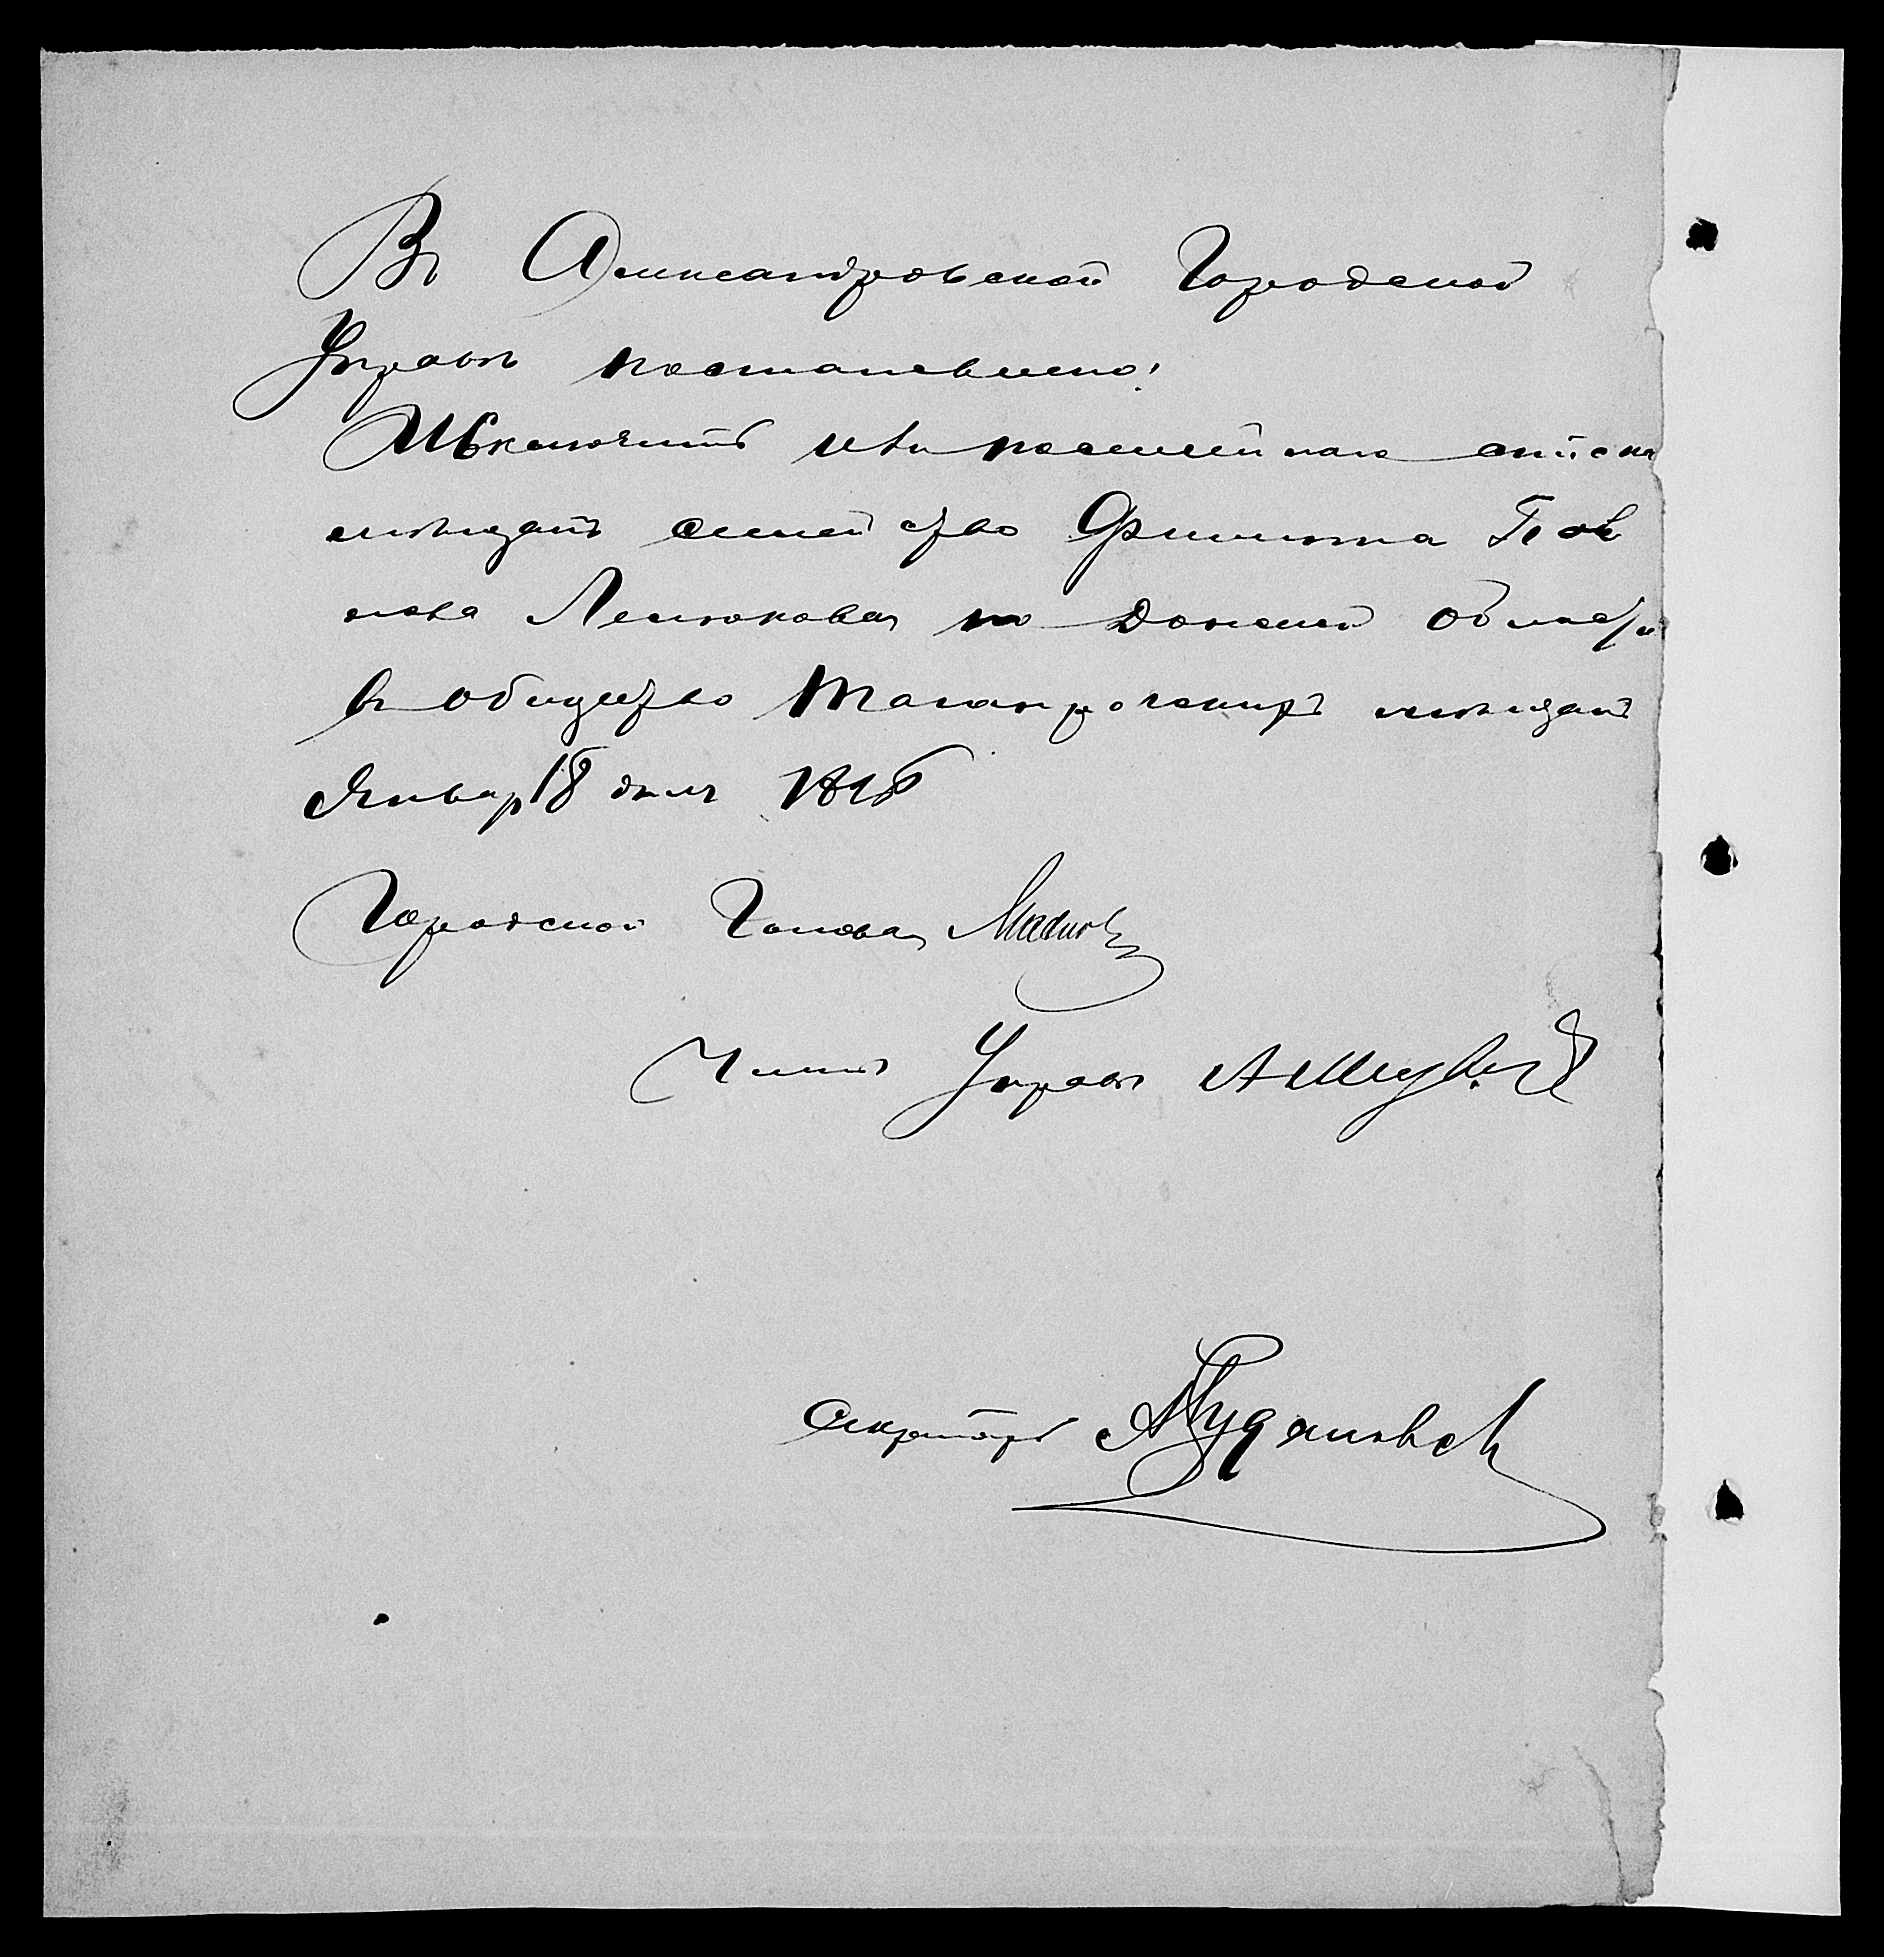 Въ Александровской Городской
Управѣ постановлено:
Исключить изъ посемейнаго списка
мѣщанъ семейство Филиппа Пав
лова Лелюкова по Донской области
въ общество Таганрогскихъ мѣщанъ
Января 18 дня
Городской Голова
Членъ Управы
Секретарь